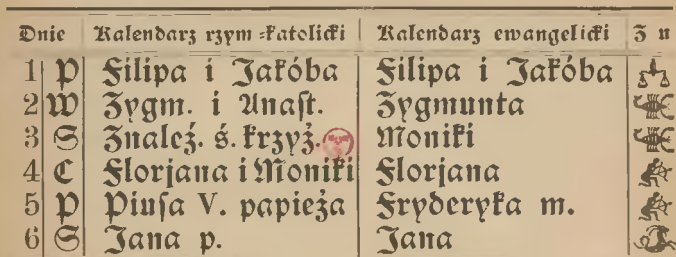 Dnie Kalendarz rzym=katolicki Kalendarz ewangelicki Zn
1 P Filipa i Jakóba Filipa i Jakóba
2 W Zygm. i Anast. Zygmunta
3 S Znaleź. ś. krzyż. Moniki
4 C Florjana i Moniki Florjana
5 P Piusa V. papieża Fryderyka m.
6 S Jana p. Jana